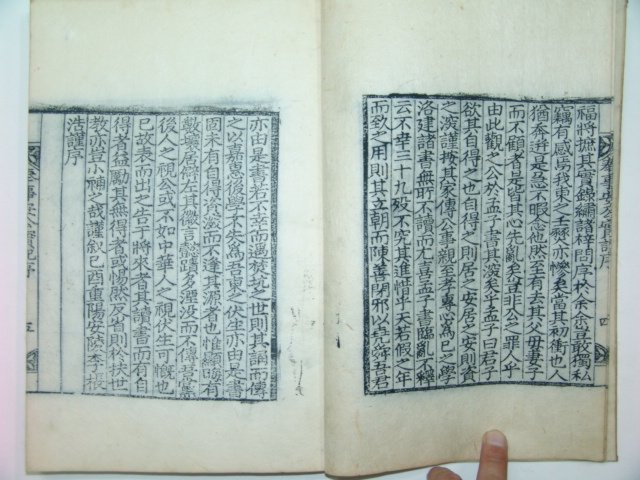 福將摭其實錄繡諸梓問序於余余喜談獨私
竊有感焉我東之壬燹亦慘矣當其初衝也人
猶奔迸是急不暇念他然至有去其父母妻子
而不顧者是皆其心先亂矣豈非公之罪人乎
由此觀之公於孟子一書其深矣乎孟子曰君子
欲其自得之也自得之則居之安居之安則資
之深謹按其家傳公事親至孝專心爲己之學
洛建諸書無所不讀而尤喜孟子書臨亂不釋
云不幸三十九歿不究其進惜乎天若假之年
而致之用則其立朝而陳善閉邪以堯舜吾君
四
亦由是書者不幸而遇焚坑之世則其誦而傳
之以嘉惠後學子矢爲吾東之伏生亦由是書
固未有自得之資深而不逢其源者也惟顯晦有
數居僻左其微言懿蹟多湮沒而不傳吾
後人之視公或不如中華人之視伏生可慨也
已故表而出之告于將來者其讀書而有自
得者益勵其無得者或惕然反省則於扶世
教亦豈小補之哉謹敍己酉重陽安陵李
浩謹序
五